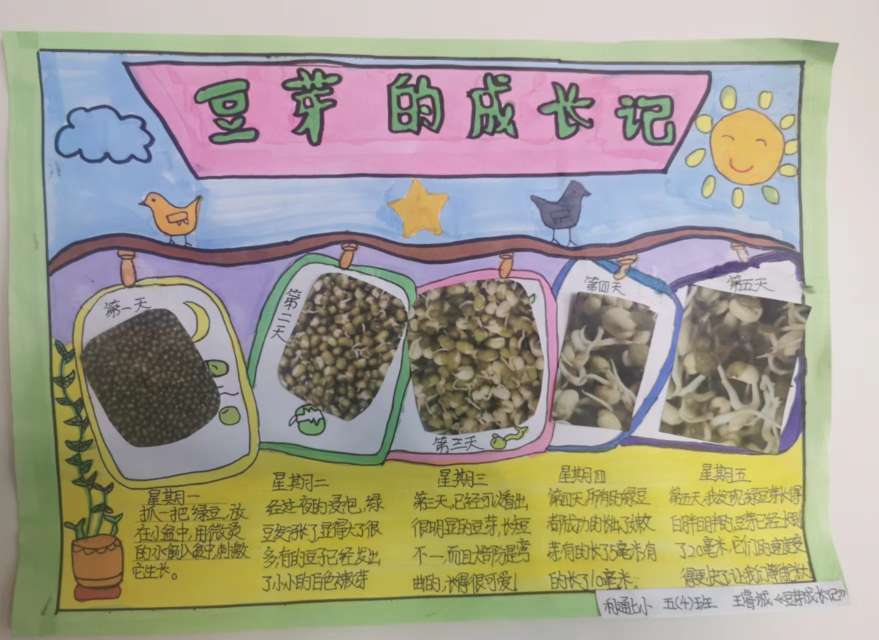 豆芽的成长记
第一天
第二天
第三天
第四天
第五天
星期一
抓一把绿豆,放
在小盆中,用微烫
的水倒入盆中,刺激
它生长。
星期二
经过一夜的浸泡,绿
豆发胀了,豆芽大了很
多,有的豆子已经发出
了小小的白色嫩芽
星期三
第三天,已经可以看出
很明显的豆芽,长短
不一,而且焙防是弯
曲的,长得很可爱!
星期四
第四天,所有的绿豆
都成功的长出了嫩
芽有的长了5毫米,有
的长了10毫米。
星期五
第五天,我发现,绿豆芽长得
白胖白胖的,豆芽已经长到
了20毫米,它们的速度变
得更快了
利通七小 五(4)班 王 《豆芽成长记》